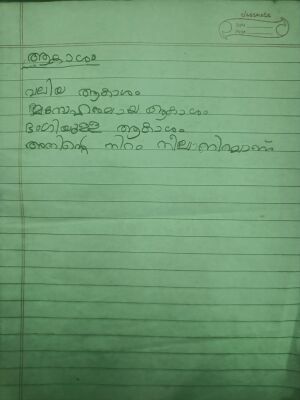 classmate
Date
Page
ആകാശം
വലിയ ആകാശം
മനോഹരമായ ആകാശം
ഭംഗിയുള്ള ആകാശം
അതിന്റെ നിറം നീലനിറമാണ്